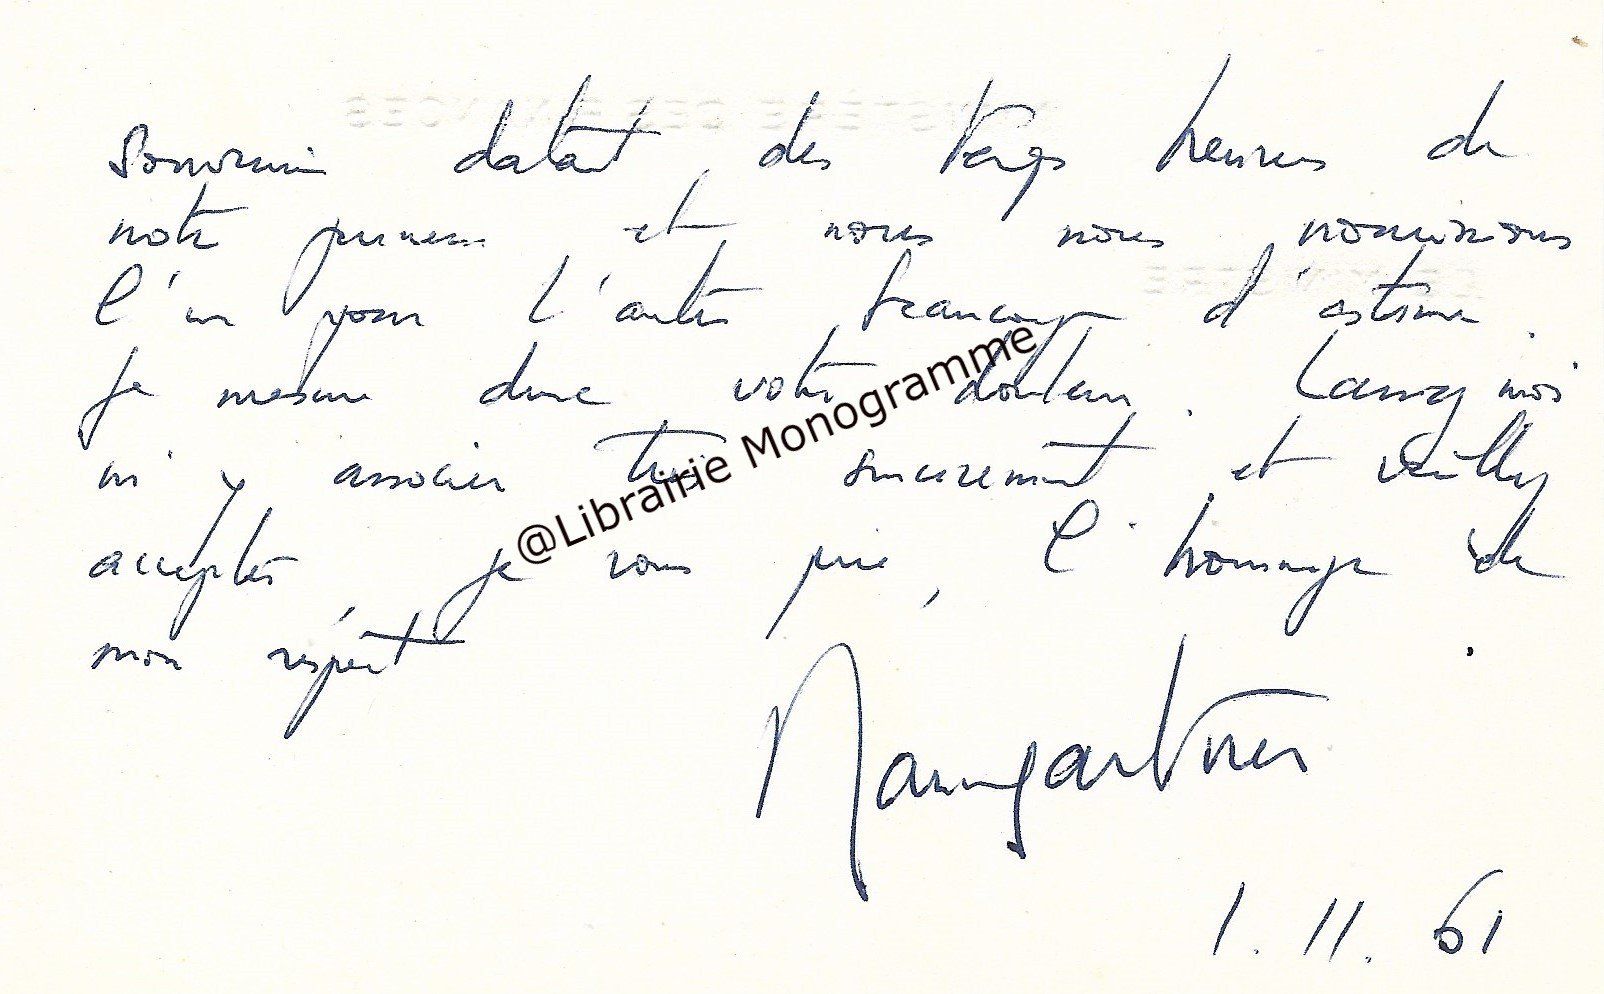 souvenir datant des temps heureux de
notre jeunesse et nous nous nourrissions
l'un pour l'autre beaucoup d'estime.
Je mesure donc votre douleur. Laissez moi
m'y associer très sincèrement et veuillez
accepter, je vous prie, l'hommage de
mon respect.
Baumgartner
1.11.61
@Librairie Monogramme